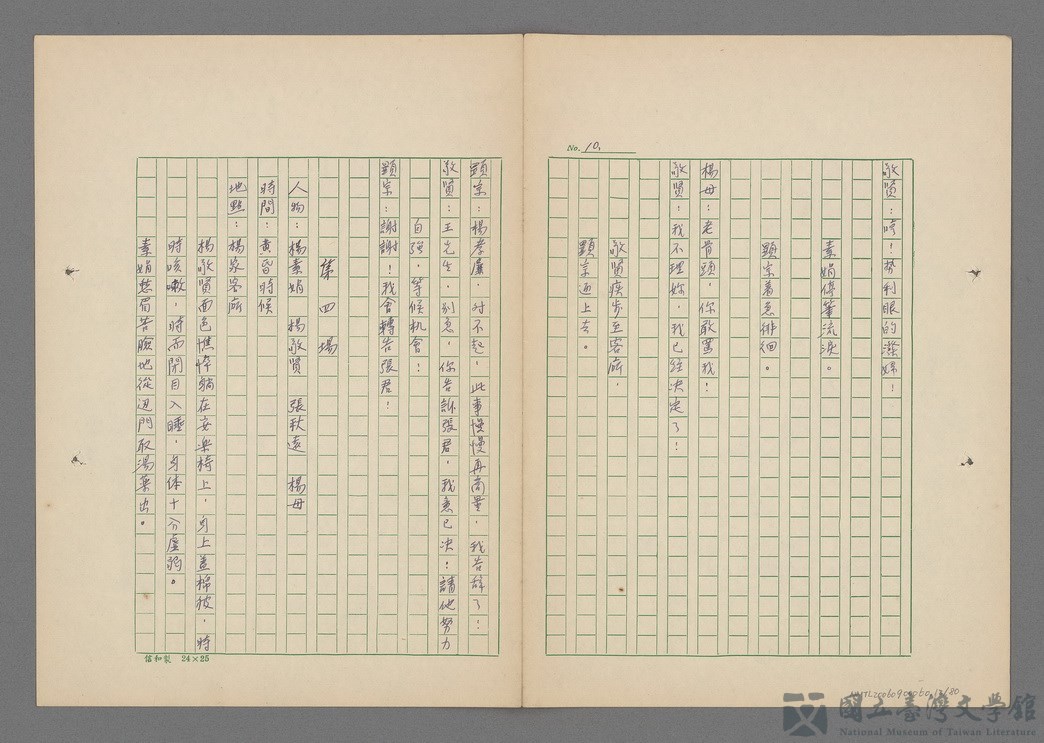 No. 10.
敬賢：哼！勢利眼的潑婦！
素娟停筆流淚。
顯宗着急徘徊。
楊母：老骨頭，你敢罵我！
敬賢：我不理妳，我已經决定了！
敬賢疾步至客廳，
顯宗迎上去。
顯宗：楊孝廉，对不起，此事慢慢再商量，我告辞了！
敬賢：王先生，别急，你告訴張君，我意已决！請他努力
自強，等候机會！
顯宗：謝謝！我會轉告張君！
第四場
人物：楊素娟 楊敬賢 張秋遠 楊母
時間：黃昏時候
地點：楊家客廳
楊敬賢面色憔悴躺在安楽椅上，身上盖棉被，時
時咳嗽，時而閉目入睡，身体十分虛弱。
素娟愁眉苦臉地從边門取湯藥出。
信和製 24×25
NMTL20060900060 12/80
國立臺灣文學館
National Museum of Taiwan Literature